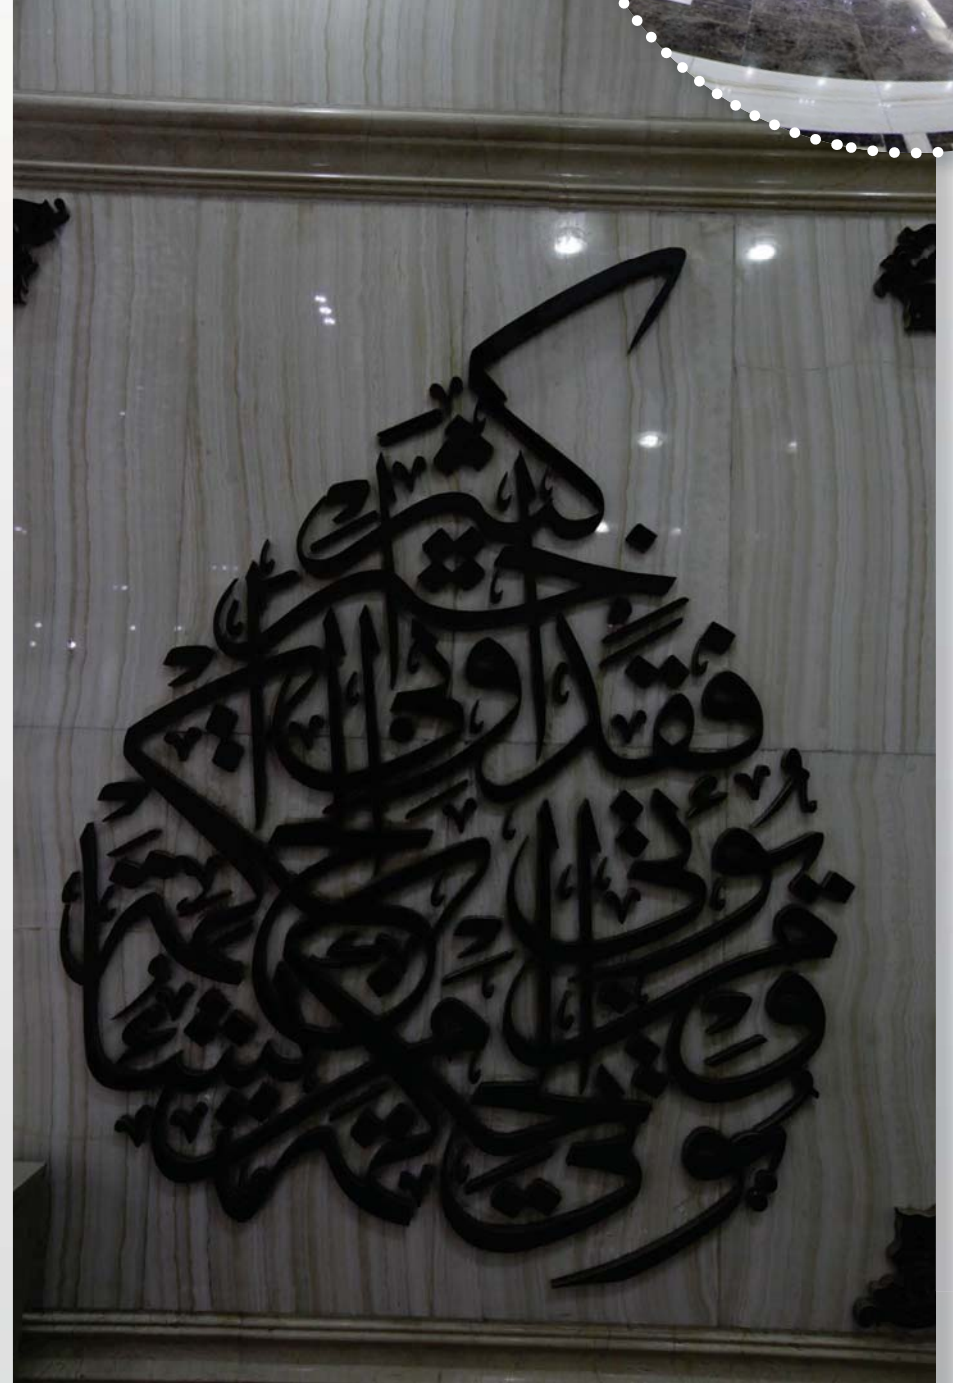 يُؤْتِي الْحِكْمَةَ مَن يَشَاءُ
وَمَن يُؤْتَ الْحِكْمَةَ
فَقَدْ أُوتِيَ
خَيْرًا
كَثِيرًا